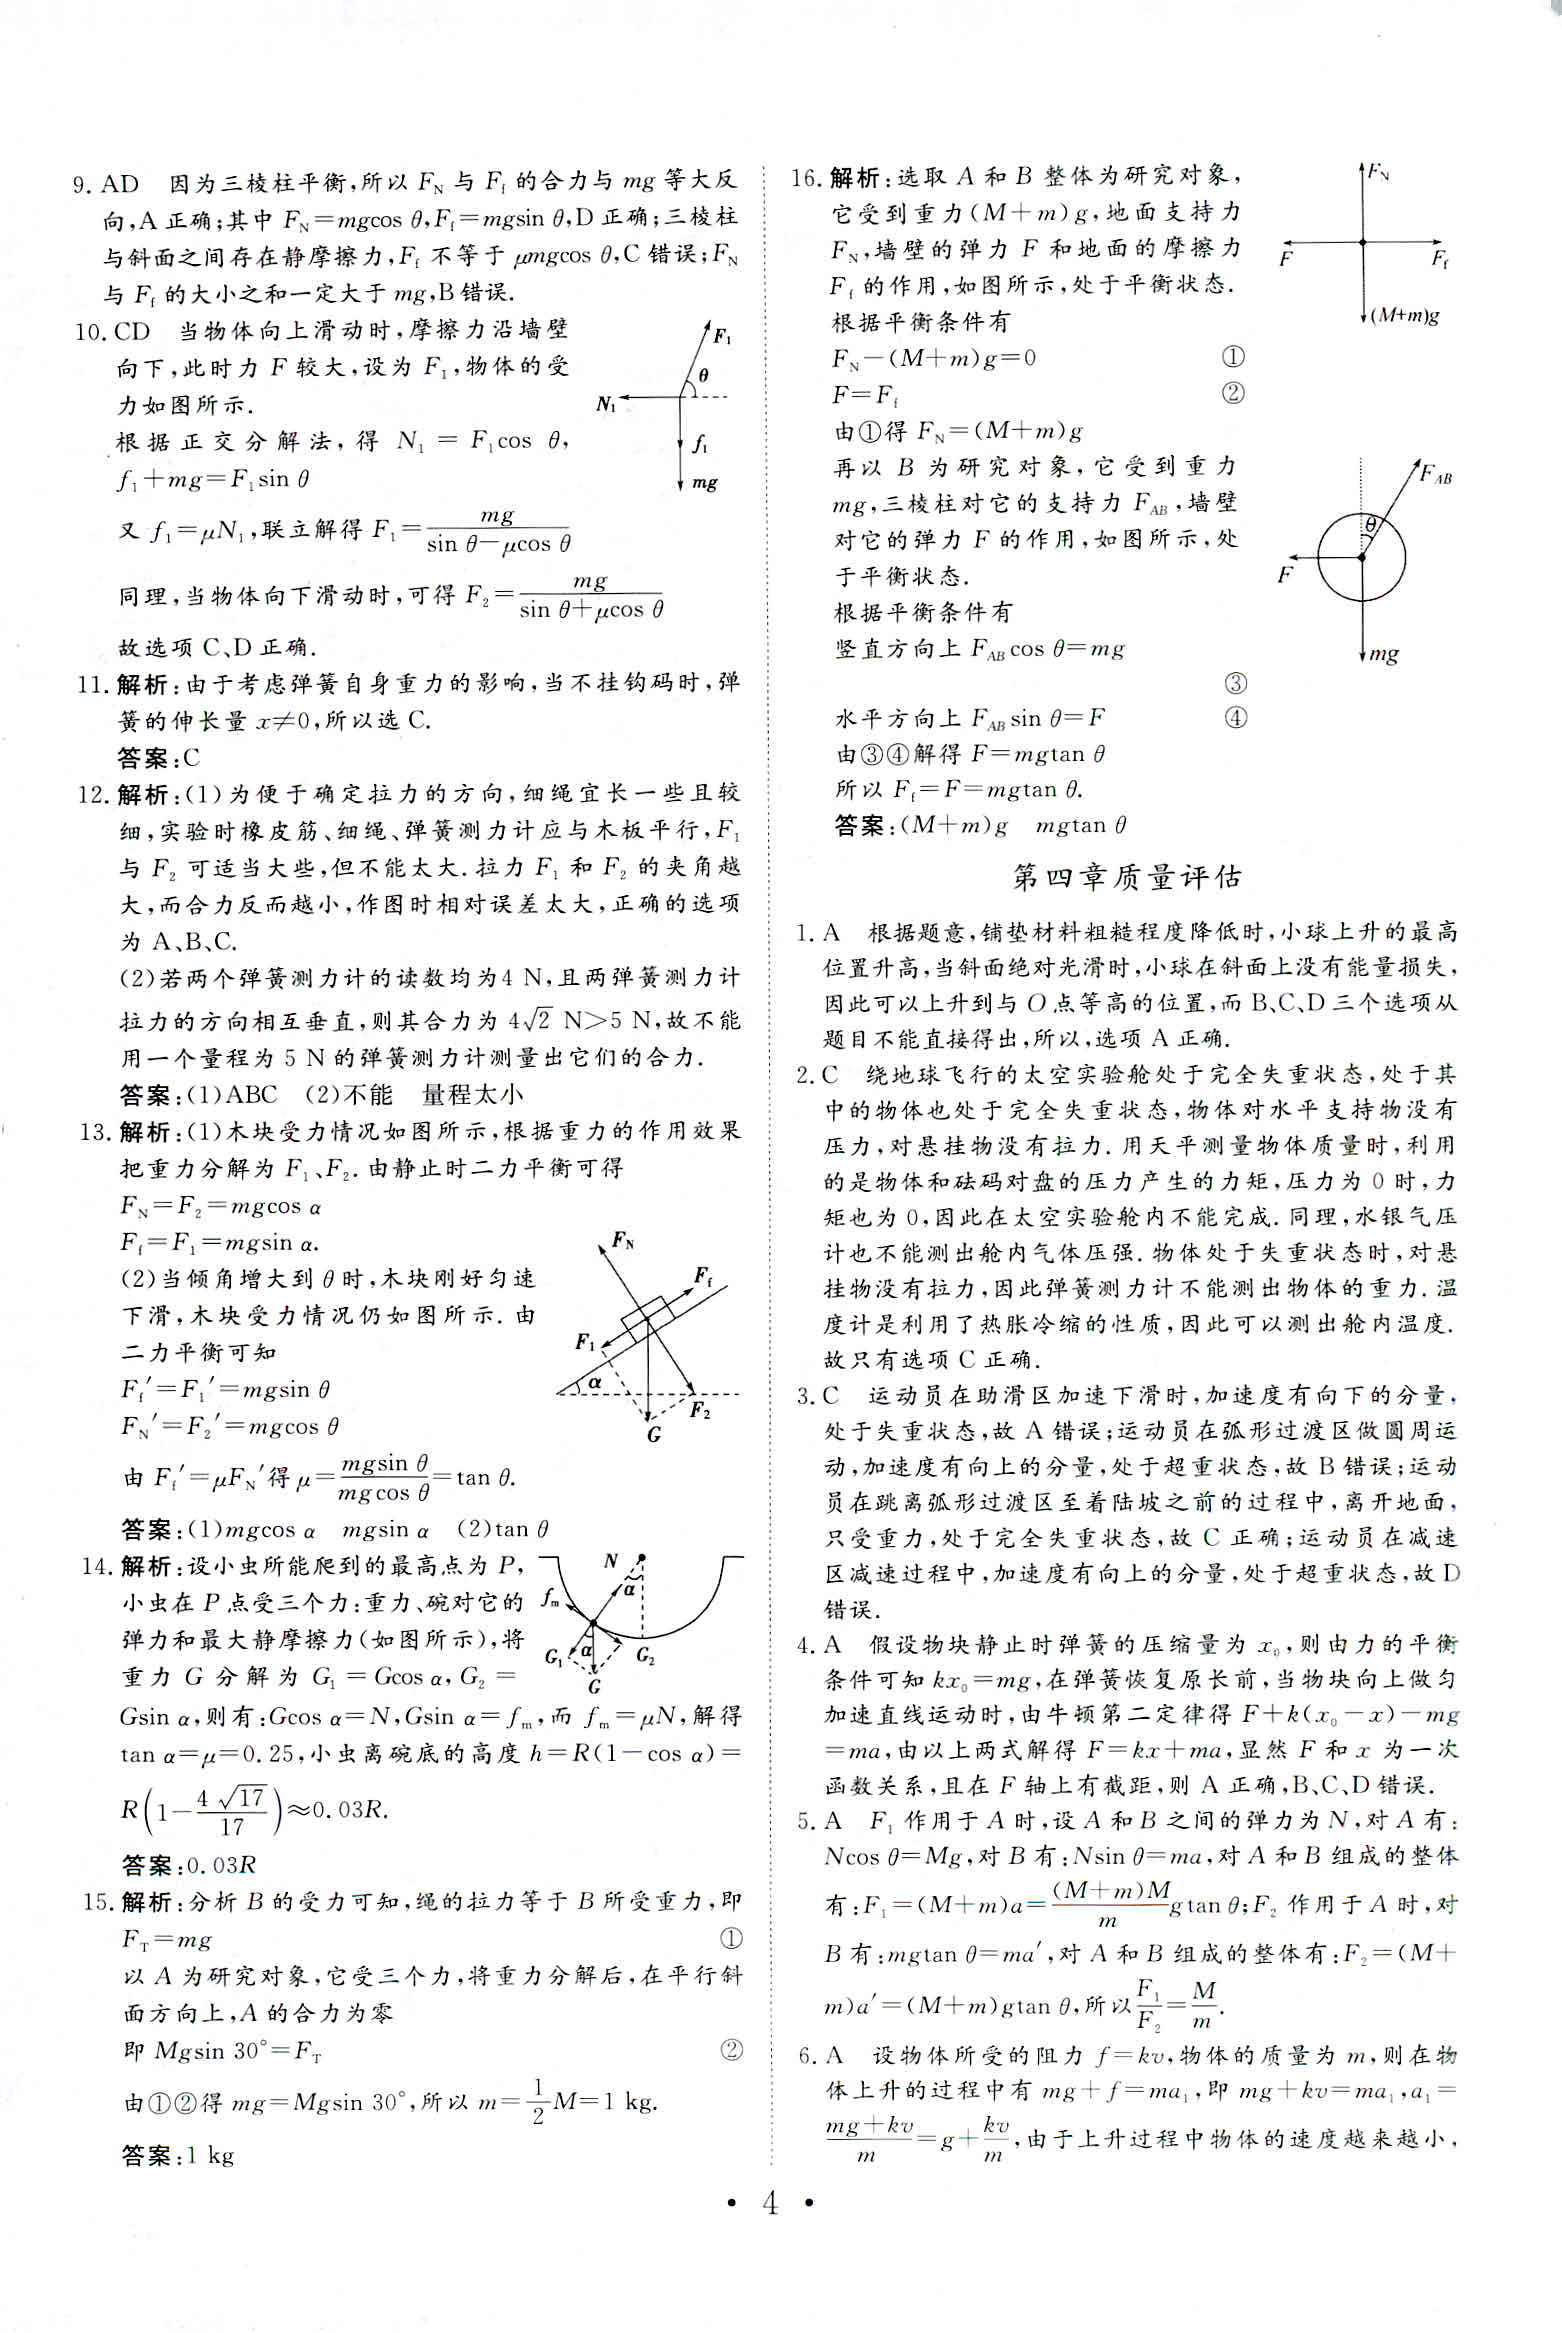 9. AD　因为三棱柱平衡,所以 F_N 与 F_f 的合力与 mg 等大反
向,A 正确;其中 F_N=mgcos θ,F_f=mgsin θ,D 正确;三棱柱
与斜面之间存在静摩擦力,F_f 不等于 μmgcos θ,C 错误;F_N
与 F_f 的大小之和一定大于 mg,B 错误.
10. CD　当物体向上滑动时,摩擦力沿墙壁
向下,此时力 F 较大,设为 F₁,物体的受
力如图所示.
根据正交分解法,得 N₁ = F₁cos θ,
f₁+mg=F₁sin θ
又 f₁=μN₁,联立解得 F₁=mg/(sin θ-μcos θ)
同理,当物体向下滑动时,可得 F₂=mg/(sin θ+μcos θ)
故选项 C、D 正确.
F₁
θ
N₁
f₁
mg
11. 解析:由于考虑弹簧自身重力的影响,当不挂钩码时,弹
簧的伸长量 x≠0,所以选 C.
答案:C
12. 解析:(1)为便于确定拉力的方向,细绳宜长一些且较
细,实验时橡皮筋、细绳、弹簧测力计应与木板平行,F₁
与 F₂ 可适当大些,但不能太大.拉力 F₁ 和 F₂ 的夹角越
大,而合力反而越小,作图时相对误差太大,正确的选项
为 A、B、C.
(2)若两个弹簧测力计的读数均为4 N,且两弹簧测力计
拉力的方向相互垂直,则其合力为 4√2 N>5 N,故不能
用一个量程为 5 N 的弹簧测力计测量出它们的合力.
答案:(1)ABC　(2)不能　量程太小
13. 解析:(1)木块受力情况如图所示,根据重力的作用效果
把重力分解为 F₁、F₂.由静止时二力平衡可得
F_N=F₂=mgcos α
F_f=F₁=mgsin α.
(2)当倾角增大到 θ 时,木块刚好匀速
下滑,木块受力情况仍如图所示.由
二力平衡可知
F_f′=F₁′=mgsin θ
F_N′=F₂′=mgcos θ
由 F_f′=μF_N′得 μ=mgsin θ/mgcos θ=tan θ.
答案:(1)mgcos α　mgsin α　(2)tan θ
F_N
F_f
F₁
α
F₂
G
14. 解析:设小虫所能爬到的最高点为 P,
小虫在 P 点受三个力:重力、碗对它的
弹力和最大静摩擦力(如图所示),将
重力 G 分解为 G₁ = Gcos α, G₂ =
Gsin α,则有:Gcos α=N,Gsin α=f_m,而 f_m=μN,解得
tan α=μ=0.25,小虫离碗底的高度 h=R(1-cos α)=
R(1-4√17/17)≈0.03R.
答案:0.03R
N
α
f_m
G₁
α
G₂
G
15. 解析:分析 B 的受力可知,绳的拉力等于 B 所受重力,即
F_T=mg ①
以 A 为研究对象,它受三个力,将重力分解后,在平行斜
面方向上,A 的合力为零
即 Mgsin 30°=F_T ②
由①②得 mg=Mgsin 30°,所以 m=1/2M=1 kg.
答案:1 kg
16. 解析:选取 A 和 B 整体为研究对象,
它受到重力(M+m)g,地面支持力
F_N,墙壁的弹力 F 和地面的摩擦力
F_f 的作用,如图所示,处于平衡状态.
根据平衡条件有
F_N-(M+m)g=0 ①
F=F_f ②
由①得 F_N=(M+m)g
再以 B 为研究对象,它受到重力
mg,三棱柱对它的支持力 F_AB,墙壁
对它的弹力 F 的作用,如图所示,处
于平衡状态.
根据平衡条件有
竖直方向上 F_AB cos θ=mg
③
水平方向上 F_AB sin θ=F ④
由③④解得 F=mgtan θ
所以 F_f=F=mgtan θ.
答案:(M+m)g　mgtan θ
F_N
F
F_f
(M+m)g
F_AB
θ
F
mg
第四章质量评估
1. A　根据题意,铺垫材料粗糙程度降低时,小球上升的最高
位置升高,当斜面绝对光滑时,小球在斜面上没有能量损失,
因此可以上升到与 O 点等高的位置,而 B、C、D 三个选项从
题目不能直接得出,所以,选项 A 正确.
2. C　绕地球飞行的太空实验舱处于完全失重状态,处于其
中的物体也处于完全失重状态,物体对水平支持物没有
压力,对悬挂物没有拉力.用天平测量物体质量时,利用
的是物体和砝码对盘的压力产生的力矩,压力为 0 时,力
矩也为 0,因此在太空实验舱内不能完成.同理,水银气压
计也不能测出舱内气体压强.物体处于失重状态时,对悬
挂物没有拉力,因此弹簧测力计不能测出物体的重力.温
度计是利用了热胀冷缩的性质,因此可以测出舱内温度.
故只有选项 C 正确.
3. C　运动员在助滑区加速下滑时,加速度有向下的分量,
处于失重状态,故 A 错误;运动员在弧形过渡区做圆周运
动,加速度有向上的分量,处于超重状态,故 B 错误;运动
员在跳离弧形过渡区至着陆坡之前的过程中,离开地面,
只受重力,处于完全失重状态,故 C 正确;运动员在减速
区减速过程中,加速度有向上的分量,处于超重状态,故 D
错误.
4. A　假设物块静止时弹簧的压缩量为 x₀,则由力的平衡
条件可知 kx₀=mg,在弹簧恢复原长前,当物块向上做匀
加速直线运动时,由牛顿第二定律得 F+k(x₀-x)-mg
=ma,由以上两式解得 F=kx+ma,显然 F 和 x 为一次
函数关系,且在 F 轴上有截距,则 A 正确,B、C、D 错误.
5. A　F₁ 作用于 A 时,设 A 和 B 之间的弹力为 N,对 A 有:
Ncos θ=Mg,对 B 有:Nsin θ=ma,对 A 和 B 组成的整体
有:F₁=(M+m)a=(M+m)M/m gtan θ;F₂ 作用于 A 时,对
B 有:mgtan θ=ma′,对 A 和 B 组成的整体有:F₂=(M+
m)a′=(M+m)gtan θ,所以F₁/F₂=M/m.
6. A　设物体所受的阻力 f=kv,物体的质量为 m,则在物
体上升的过程中有 mg+f=ma₁,即 mg+kv=ma₁,a₁=
(mg+kv)/m=g+kv/m,由于上升过程中物体的速度越来越小,
• 4 •